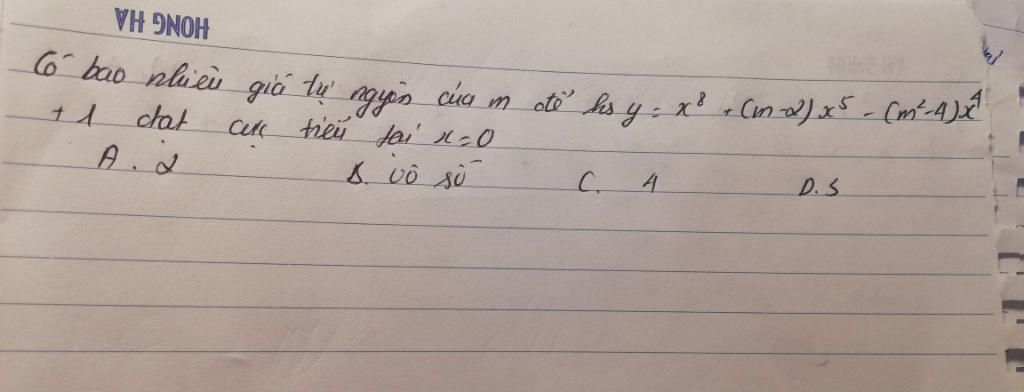 HONG HA
Có bao nhiêu giá tự nguyên của m để hs y = x⁸ + (m-2)x⁵ - (m²-4)x⁴
+ 1 đạt cực tiểu tại x=0
A. 2 B. vô số C. 4 D. 5